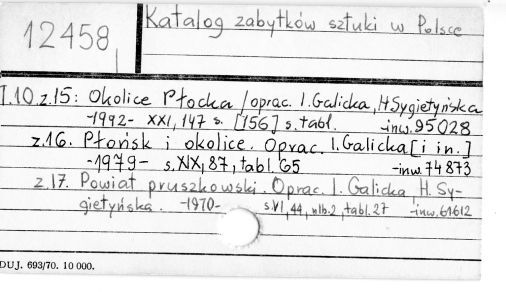 12458
Katalog zabytków sztuki w Polsce
T.10. z.15: Okolice Płocka / oprac. I. Galicka, H Sygietyńska
-1992- XXI, 147 s. [156] s. tabl. -inw. 95028
z.16. Płońsk i okolice. Oprac. I. Galicka [i in.]
-1979- s. XIX, 87, tabl. 65 -inw 74873
z.17. Powiat pruszkowski. Oprac. I. Galicka H. Sy-
gietyńska. -1970- s.VI, 44, nlb.2, tabl. 27 -inw. 61612
DUJ. 693/70. 10 000.